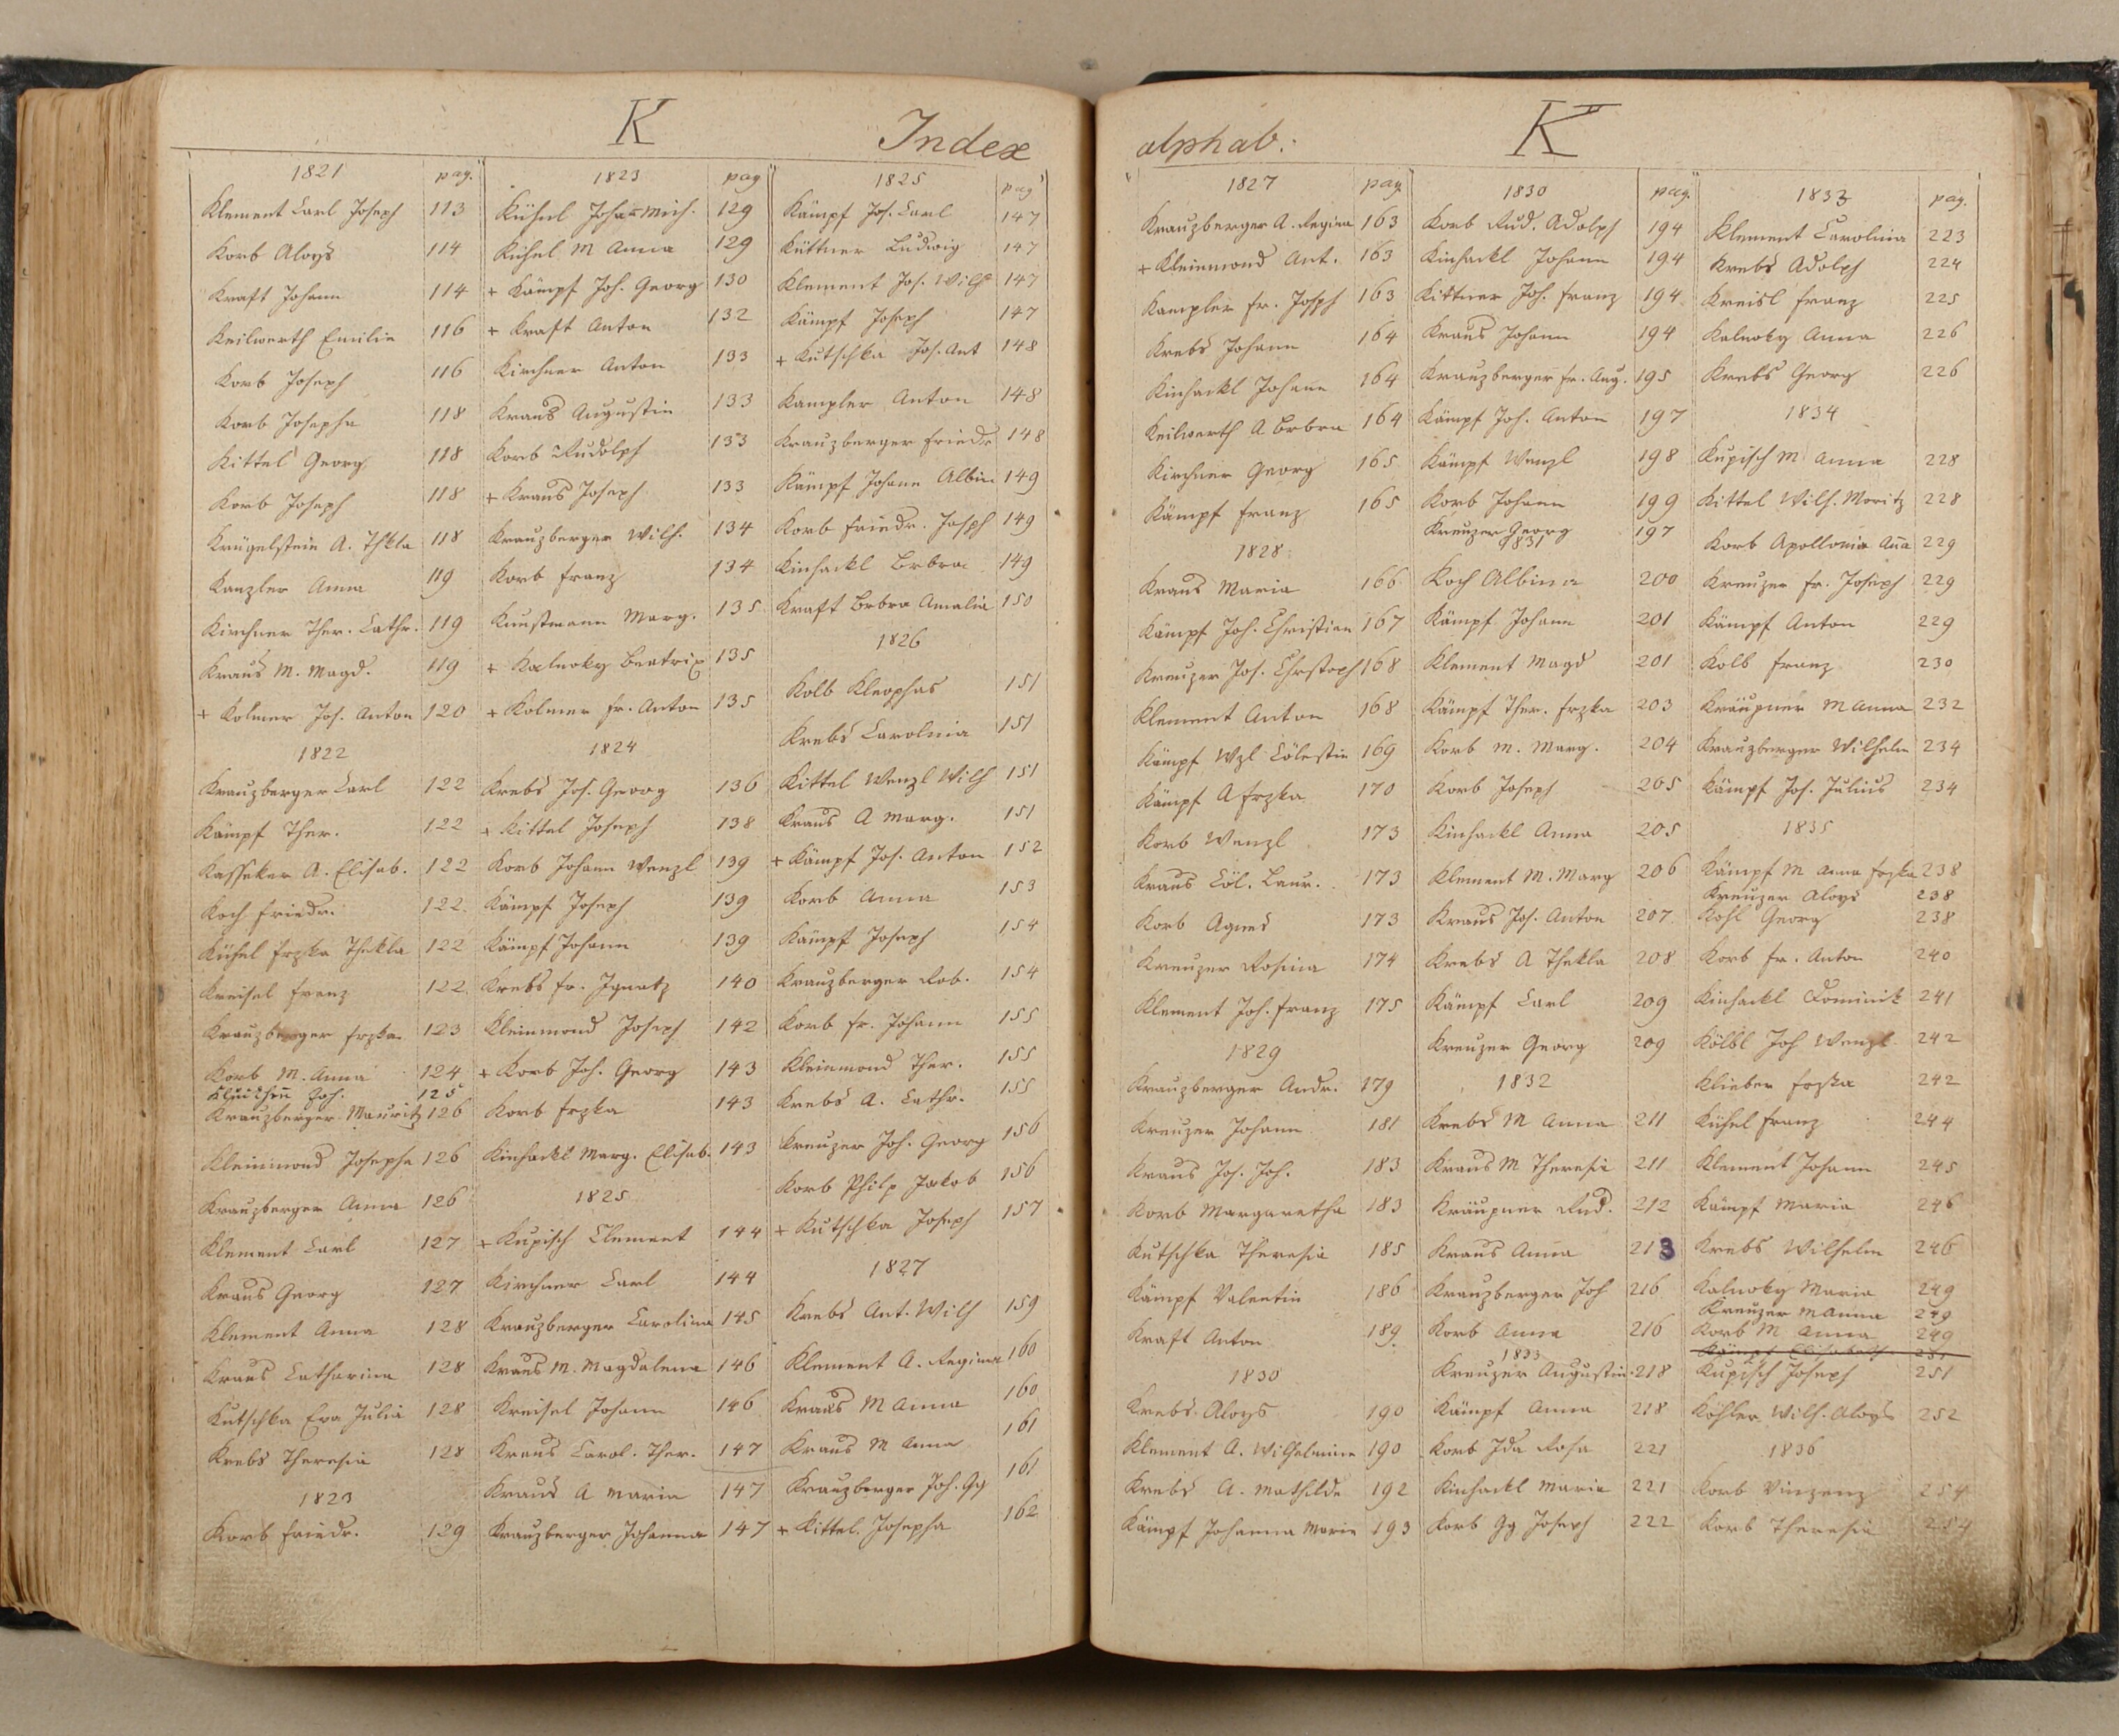 K
Index
1821 pag.
Klement Carl Joseph 113
Korb Aloys 114
Kraft Johann 114
Keilwerth Emilie 116
Korb Joseph 116
Korb Josepha 118
Kittel Georg 118
Korb Joseph 118
Krügelstein A. Thkla 118
Kanzler Anna 119
Kirchner Ther. Cathr. 119
Kraus M. Magd. 119
+ Kolmer Jos. Anton 120
1822
Krauzberger Carl 122
Kämpf Ther. 122
Kasseker A. Elisab. 122
Koch Friedr. 122
Kühnl Frzka Thekla 122
Kreisel Franz 122
Krauzberger Frzka 123
Korb M. Anna 124
Joh. 125
Krauzberger Mauritz 126
Kleinmond Josepha 126
Krauzberger Anna 126
Klement Carl 127
Kraus Georg 127
Klement Anna 128
Kraus Catharina 128
Kutschka Eva Julia 128
Krebs Theresia 128
1823
Korb Friedr. 129
1823 pag
Kühnl Johañ Mich. 129
Kühnl M Anna 129
+ Kämpf Joh. Georg 130
+ Kraft Anton 132
Kirchner Anton 133
Kraus Augustin 133
Korb Rudolph 133
+ Kraus Joseph 133
Krauzberger Wilh. 134
Korb Franz 134
Kunstmann Marg. 135
+ Kalnoky Beatrix 135
+ Kolmer Fr. Anton 135
1824
Krebs Jos. Georg 136
+ Kittel Joseph 138
Korb Johann Wenzl 139
Kämpf Joseph 139
Kämpf Johann 139
Krebs Fr. Ignatz 140
Kleinmond Joseph 142
+ Korb Joh. Georg 143
Korb Frzka 143
Kinhackl Marg. Elisab. 143
1825
+ Kupisch Clement 144
Kirchner Carl 144
Krauzberger Carolina 145
Kraus M. Magdalena 146
Kreisel Johann 146
Kraus Carol. Ther. 147
Kraus A Maria 147
Krauzberger Johanna 147
1825 pag
Kämpf Jos. Carl 147
Küttner Ludwig 147
Klement Jos. Wilh 147
Kämpf Joseph 147
+ Kutschka Jos. Ant 148
Kampler Anton 148
Krauzberger Friedr 148
Kämpf Johann Albin 149
Korb Friedr. Josph 149
Kinhackl Brbra 149
Kraft Brbra Amalia 150
1826
Kolb Kleophas 151
Krebs Carolina 151
Kittel Wenzl Wilh 151
Kraus A Marg. 151
+ Kämpf Jos. Anton 152
Korb Anna 153
Kämpf Joseph 154
Krauzberger Rob. 154
Korb Fr. Johann 155
Kleinmond Ther. 155
Krebs A. Cathr. 155
Kreuzer Joh. Georg 156
Korb Philp Jakob 156
+ Kutschka Joseph 157
1827
Krebs Ant. Wilh 159
Klement A. Regina 160
Kraus M Anna 160
Kraus M Anna 161
Krauzberger Joh. Gg 161
+ Kittel Josepha 162
alphab:
K
1827 pag.
Krauzberger A. Regina 163
+ Kleinmond Ant. 163
Kampler Fr. Josph 163
Krebs Johann 164
Kinhackl Johann 164
Keilwerth A Brbra 164
Kirchner Georg 165
Kämpf Franz 165
1828
Kraus Maria 166
Kämpf Joh. Christian 167
Kreuzer Jos. Chrstoph 168
Klement Anton 168
Kämpf Wzl Cölestin 169
Kämpf A Frzka 170
Korb Wenzl 173
Kraus Cöl. Laur. 173
Korb Agnes 173
Kreuzer Rosina 174
Klement Joh. Franz 175
1829
Krauzberger Andr. 179
Kreuzer Johann 181
Kraus Jos. Joh. 183
Korb Margaretha 183
Kutschka Theresia 185
Kämpf Valentin 186
Kraft Anton 189
1830
Krebs Aloys 190
Klement A. Wilhelmine 190
Krebs A. Mathilde 192
Kämpf Johanna Maria 193
1830 pag.
Korb Rud. Adolph 194
Kinhackl Johann 194
Kittner Joh. Franz 194
Kraus Johann 194
Krauzberger Fr. Aug. 195
Kämpf Joh. Anton 197
Kämpf Wenzl 198
Korb Johann 199
Kreuzer Georg 197
1831
Koch Albina 200
Kämpf Johann 201
Klement Magd 201
Kämpf Ther. Frzka 203
Korb M. Marg. 204
Korb Joseph 205
Kinhackl Anna 205
Klement M. Marg 206
Kraus Jos. Anton 207
Krebs A Thekla 208
Kämpf Carl 209
Kreuzer Georg 209
1832
Krebs M Anna 211
Kraus M Theresia 211
Kräupner Rud. 212
Kraus Anna 213
Krauzberger Joh 216
Korb Anna 216
1833
Kreuzer Augustin 218
Kämpf Anna 218
Korb Ida Rosa 221
Kinhackl Maria 221
Korb Gg Joseph 222
1833 pag.
Klement Carolina 223
Krebs Adolph 224
Kreisl Franz 225
Kalnoky Anna 226
Krebs Georg 226
1834
Kupisch M Anna 228
Kittel Wilh. Moritz 228
Korb Apollonia Aña 229
Kreuzer Fr. Joseph 229
Kämpf Anton 229
Kolb Franz 230
Kräupner M Anna 232
Krauzberger Wilhelm 234
Kämpf Jos. Julius 234
1835
Kämpf M Anna Frzka 238
Kreuzer Aloys 238
Kohl Georg 238
Korb Fr. Anton 240
Kinhackl Dominik 241
Kölbl Joh Wenzl 242
Klieber Frzka 242
Kühnl Franz 244
Klement Johann 245
Kämpf Maria 246
Krebs Wilhelm 246
Kalnoky Maria 249
Kreuzer M Anna 249
Korb M Anna 249
Kämpf Elisabeth 251
Kupisch Joseph 251
Köhler Wilh. Aloys 252
1836
Korb Vinzenz 254
Korb Theresia 254